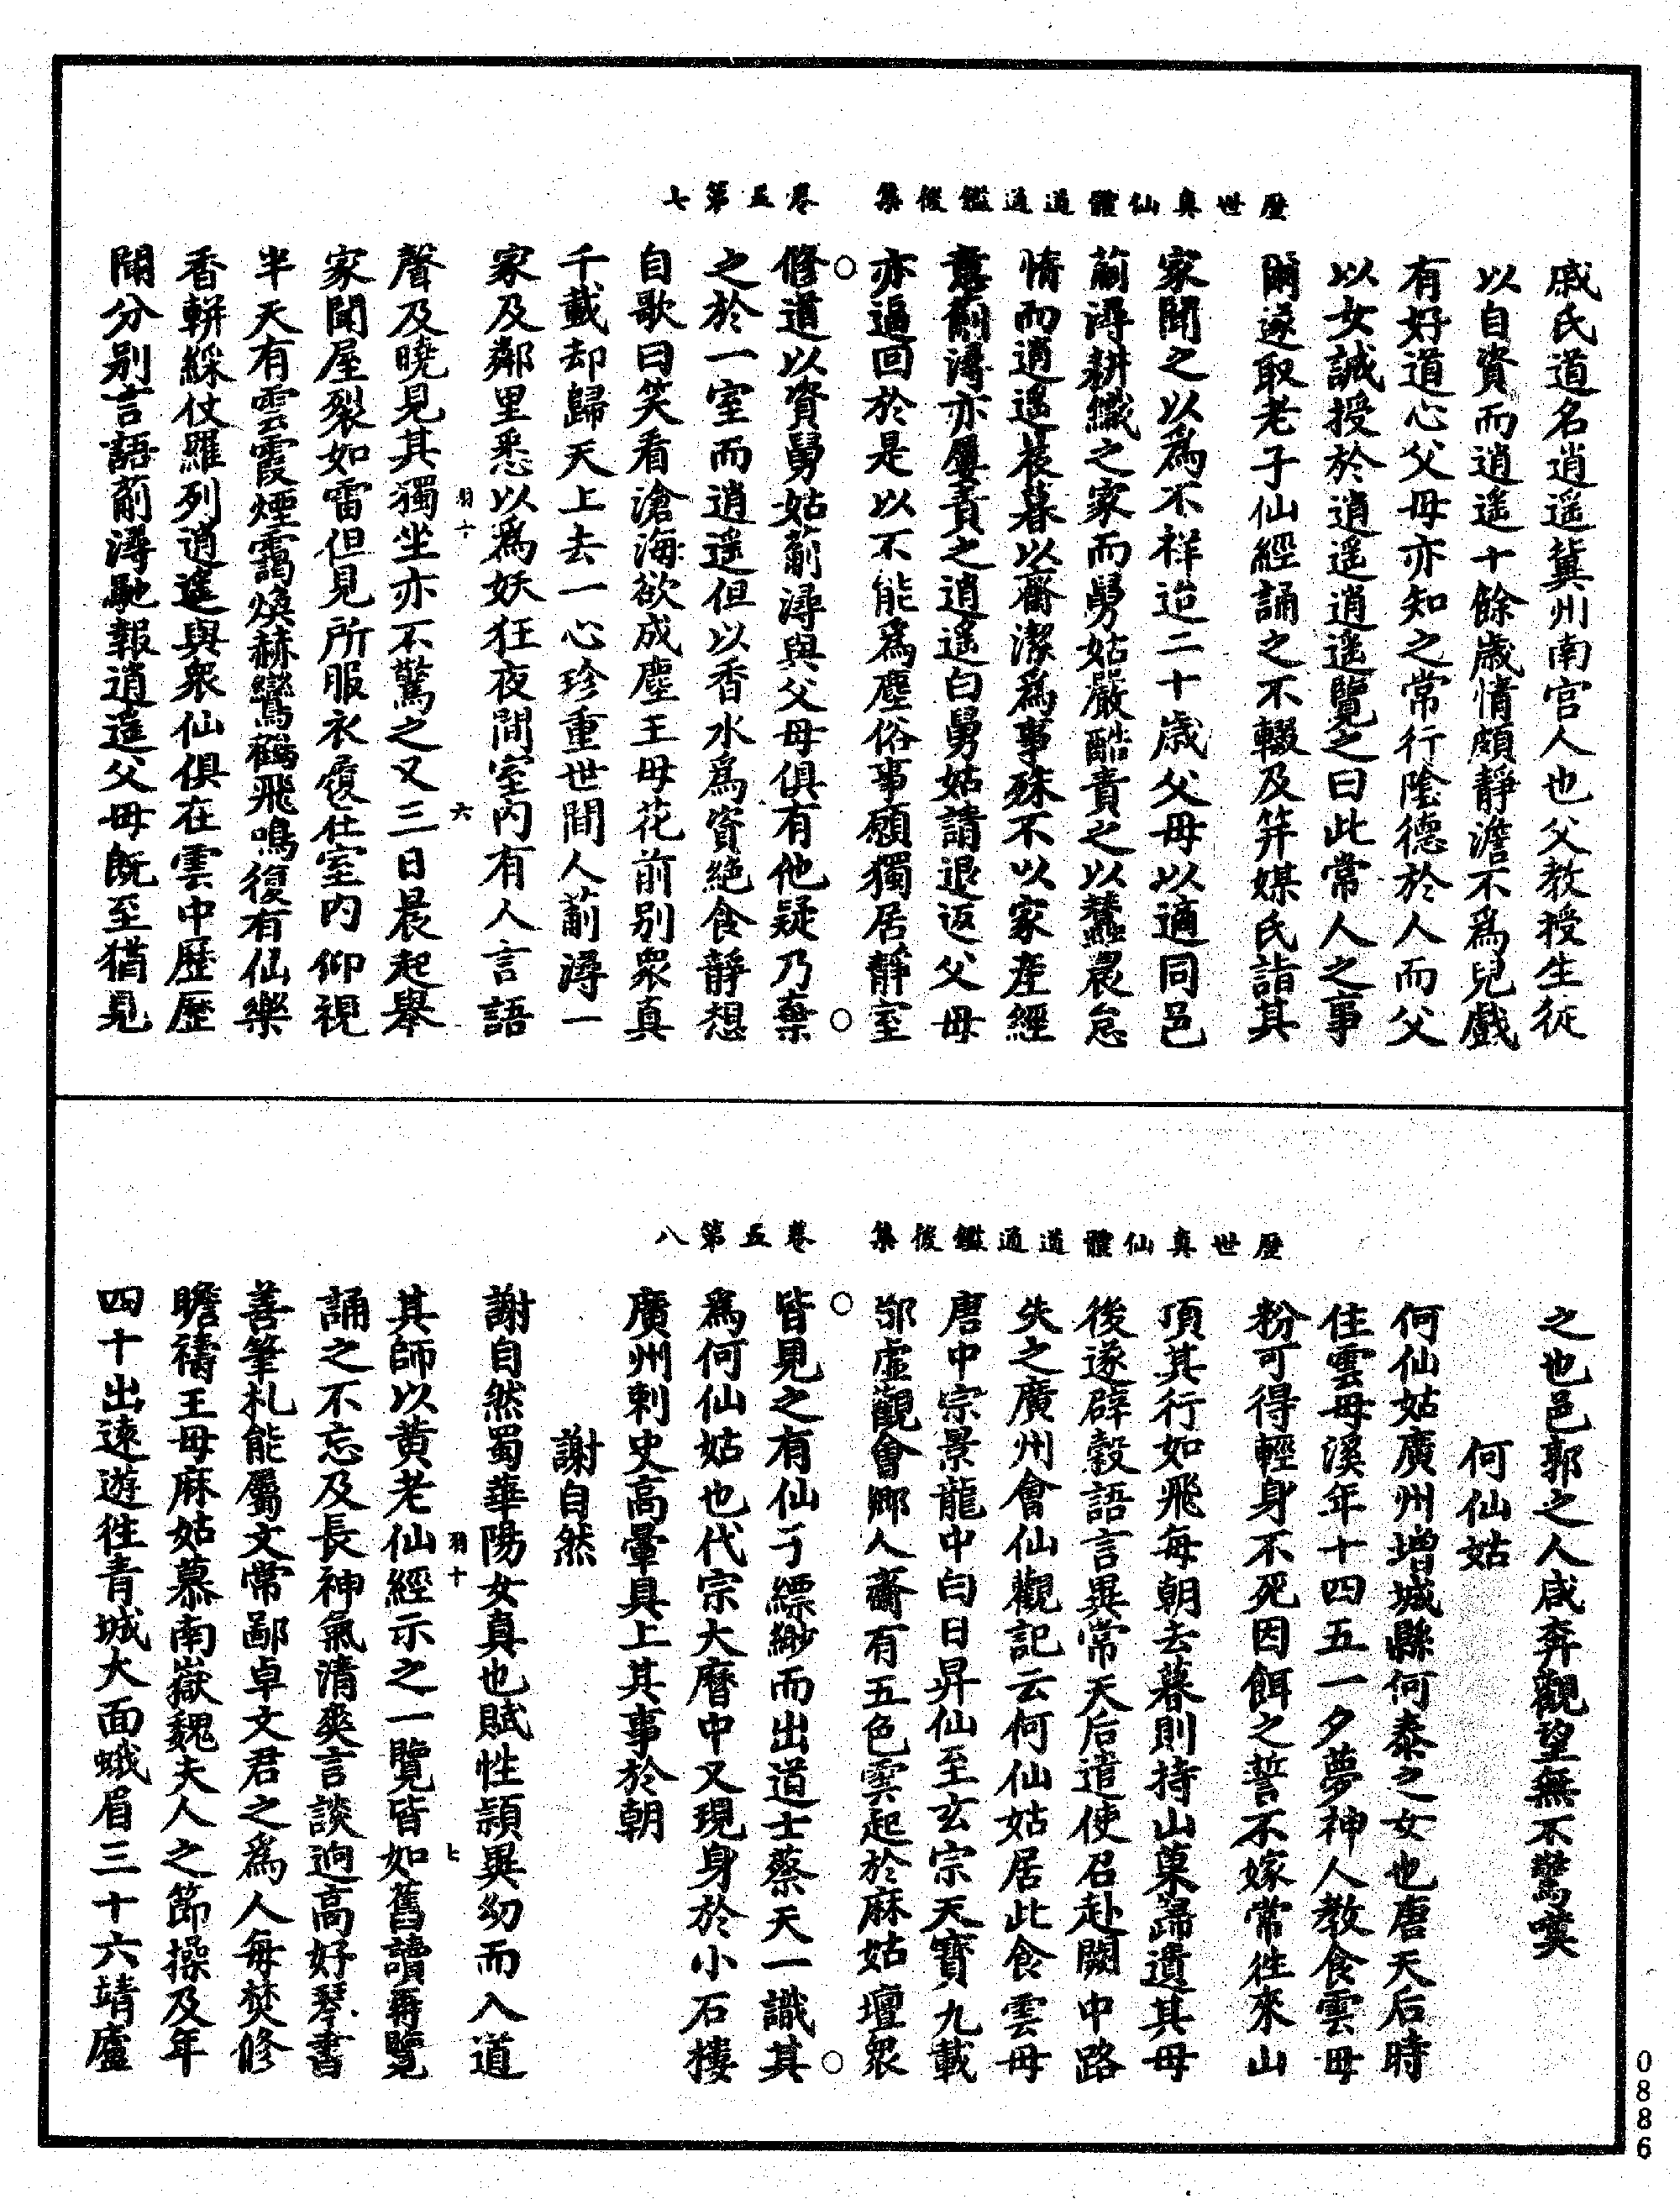 歷世真仙體道通鑑後集　卷五第七
戚氏道名逍遥冀州南宫人也父教授生徒
以自資而逍遥十餘歲情頗靜澹不為兒戲
有好道心父母亦知之常行陰德於人而父
以女誡授於逍遥逍遥覽之曰此常人之事
爾遂取老子仙經誦之不輟及笄媒氏詣其
家聞之以為不祥迨二十歲父母以適同邑
蒯潯耕織之家而舅姑嚴酷責之以蠶農怠
惰而逍遥旦暮以齋潔為事殊不以家産經
意蒯潯亦屢責之逍遥白舅姑請退返父母
亦逼回於是以不能為塵俗事願獨居靜室
修道以資舅姑蒯潯與父母俱有他疑乃棄
之於一室而逍遥但以香水為資絶食靜想
自歌曰笑看滄海欲成塵王母花前别衆真
千載却歸天上去一心珍重世間人蒯潯一
家及鄰里悉以為妖狂夜間室内有人言語
羽十　六
聲及曉見其獨坐亦不驚之又三日晨起舉
家聞屋裂如雷但見所服衣履在室内仰視
半天有雲霞煙靄焕赫鸞鶴飛鳴復有仙樂
香軿綵仗羅列逍遥與衆仙俱在雲中歷歷
聞分别言語蒯潯馳報逍遥父母既至猶見
歷世真仙體道通鑑後集　卷五第八
之也邑郭之人咸奔觀望無不驚歎
何仙姑
何仙姑廣州增城縣何泰之女也唐天后時
住雲母溪年十四五一夕夢神人教食雲母
粉可得輕身不死因餌之誓不嫁常往來山
頂其行如飛每朝去暮則持山菓歸遺其母
後遂辟穀語言異常天后遣使召赴闕中路
失之廣州會仙觀記云何仙姑居此食雲母
唐中宗景龍中白日昇仙至玄宗天寶九載
都虚觀會鄉人齋有五色雲起於麻姑壇衆
皆見之有仙子縹緲而出道士蔡天一識其
為何仙姑也代宗大曆中又現身於小石樓
廣州刺史高暈具上其事於朝
謝自然
謝自然蜀華陽女真也賦性頴異幼而入道
羽十　七
其師以黄老仙經示之一覽皆如舊讀再覽
誦之不忘及長神氣清爽言談迥高好琴書
善筆札能屬文常鄙卓文君之為人每焚修
瞻禱王母麻姑慕南嶽魏夫人之節操及年
四十出遠遊往青城大面峨眉三十六靖廬
0886